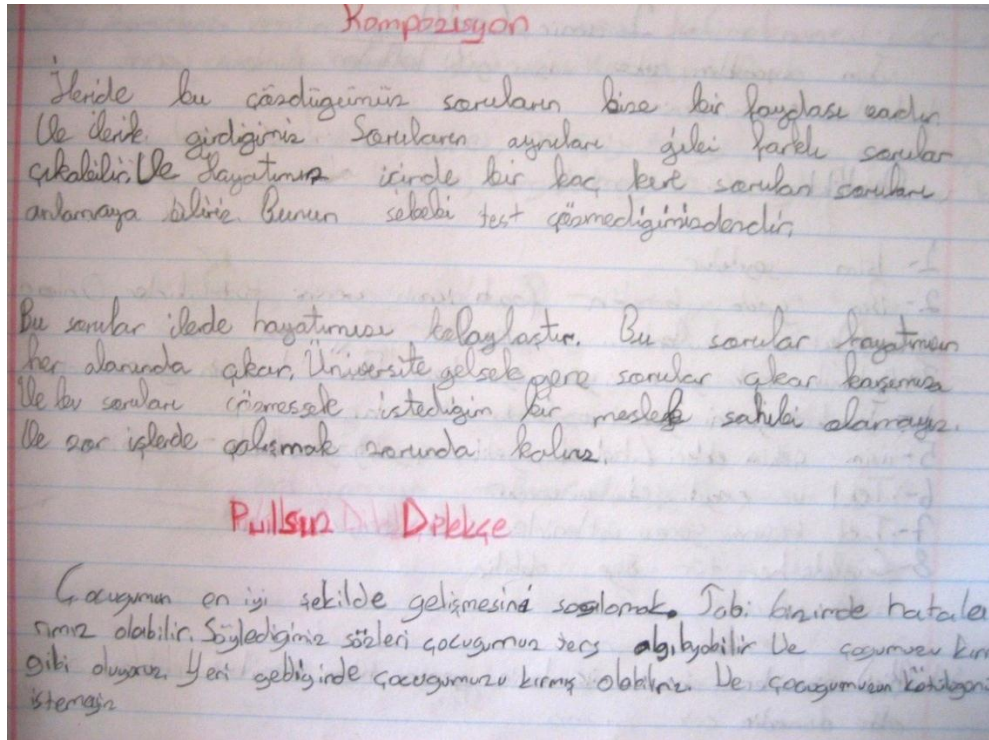 Kompozisyon
İleride bu çözdügümüz soruların bize bir faydası vardır.
Ve ilerde girdigimiz Soruların aynıları gibi farklı sorular
çıkabilir. Ve Hayatımız içinde bir kaç kere sorulan soruları
anlamaya biliriz. Bunun sebebi test çözmedigimizdendir.
Bu sorular ilerde hayatımızı kolaylaştır. Bu sorular hayatımızın
her alanında çıkar. Üniversite gelsek gene sorular çıkar karşımıza
Ve bu soruları çözmessek istedigim bir meslek sahibi olamayız.
Ve zor işlerde çalışmak zorunda kalırız.
Pullsuz Dilekçe
Çocugumun en iyi şekilde gelişmesini saglamak. Tabi bizimde hatala
rımız olabilir. Söyledigimiz sözleri çocugumuz ters algılıyobilir Ve çogumuzu kırm
gibi oluyoruz. Yeri geldiginde çocugumuzu kırmış olabiliriz. Ve çocugumuzun kötülügünü
istemeyiz